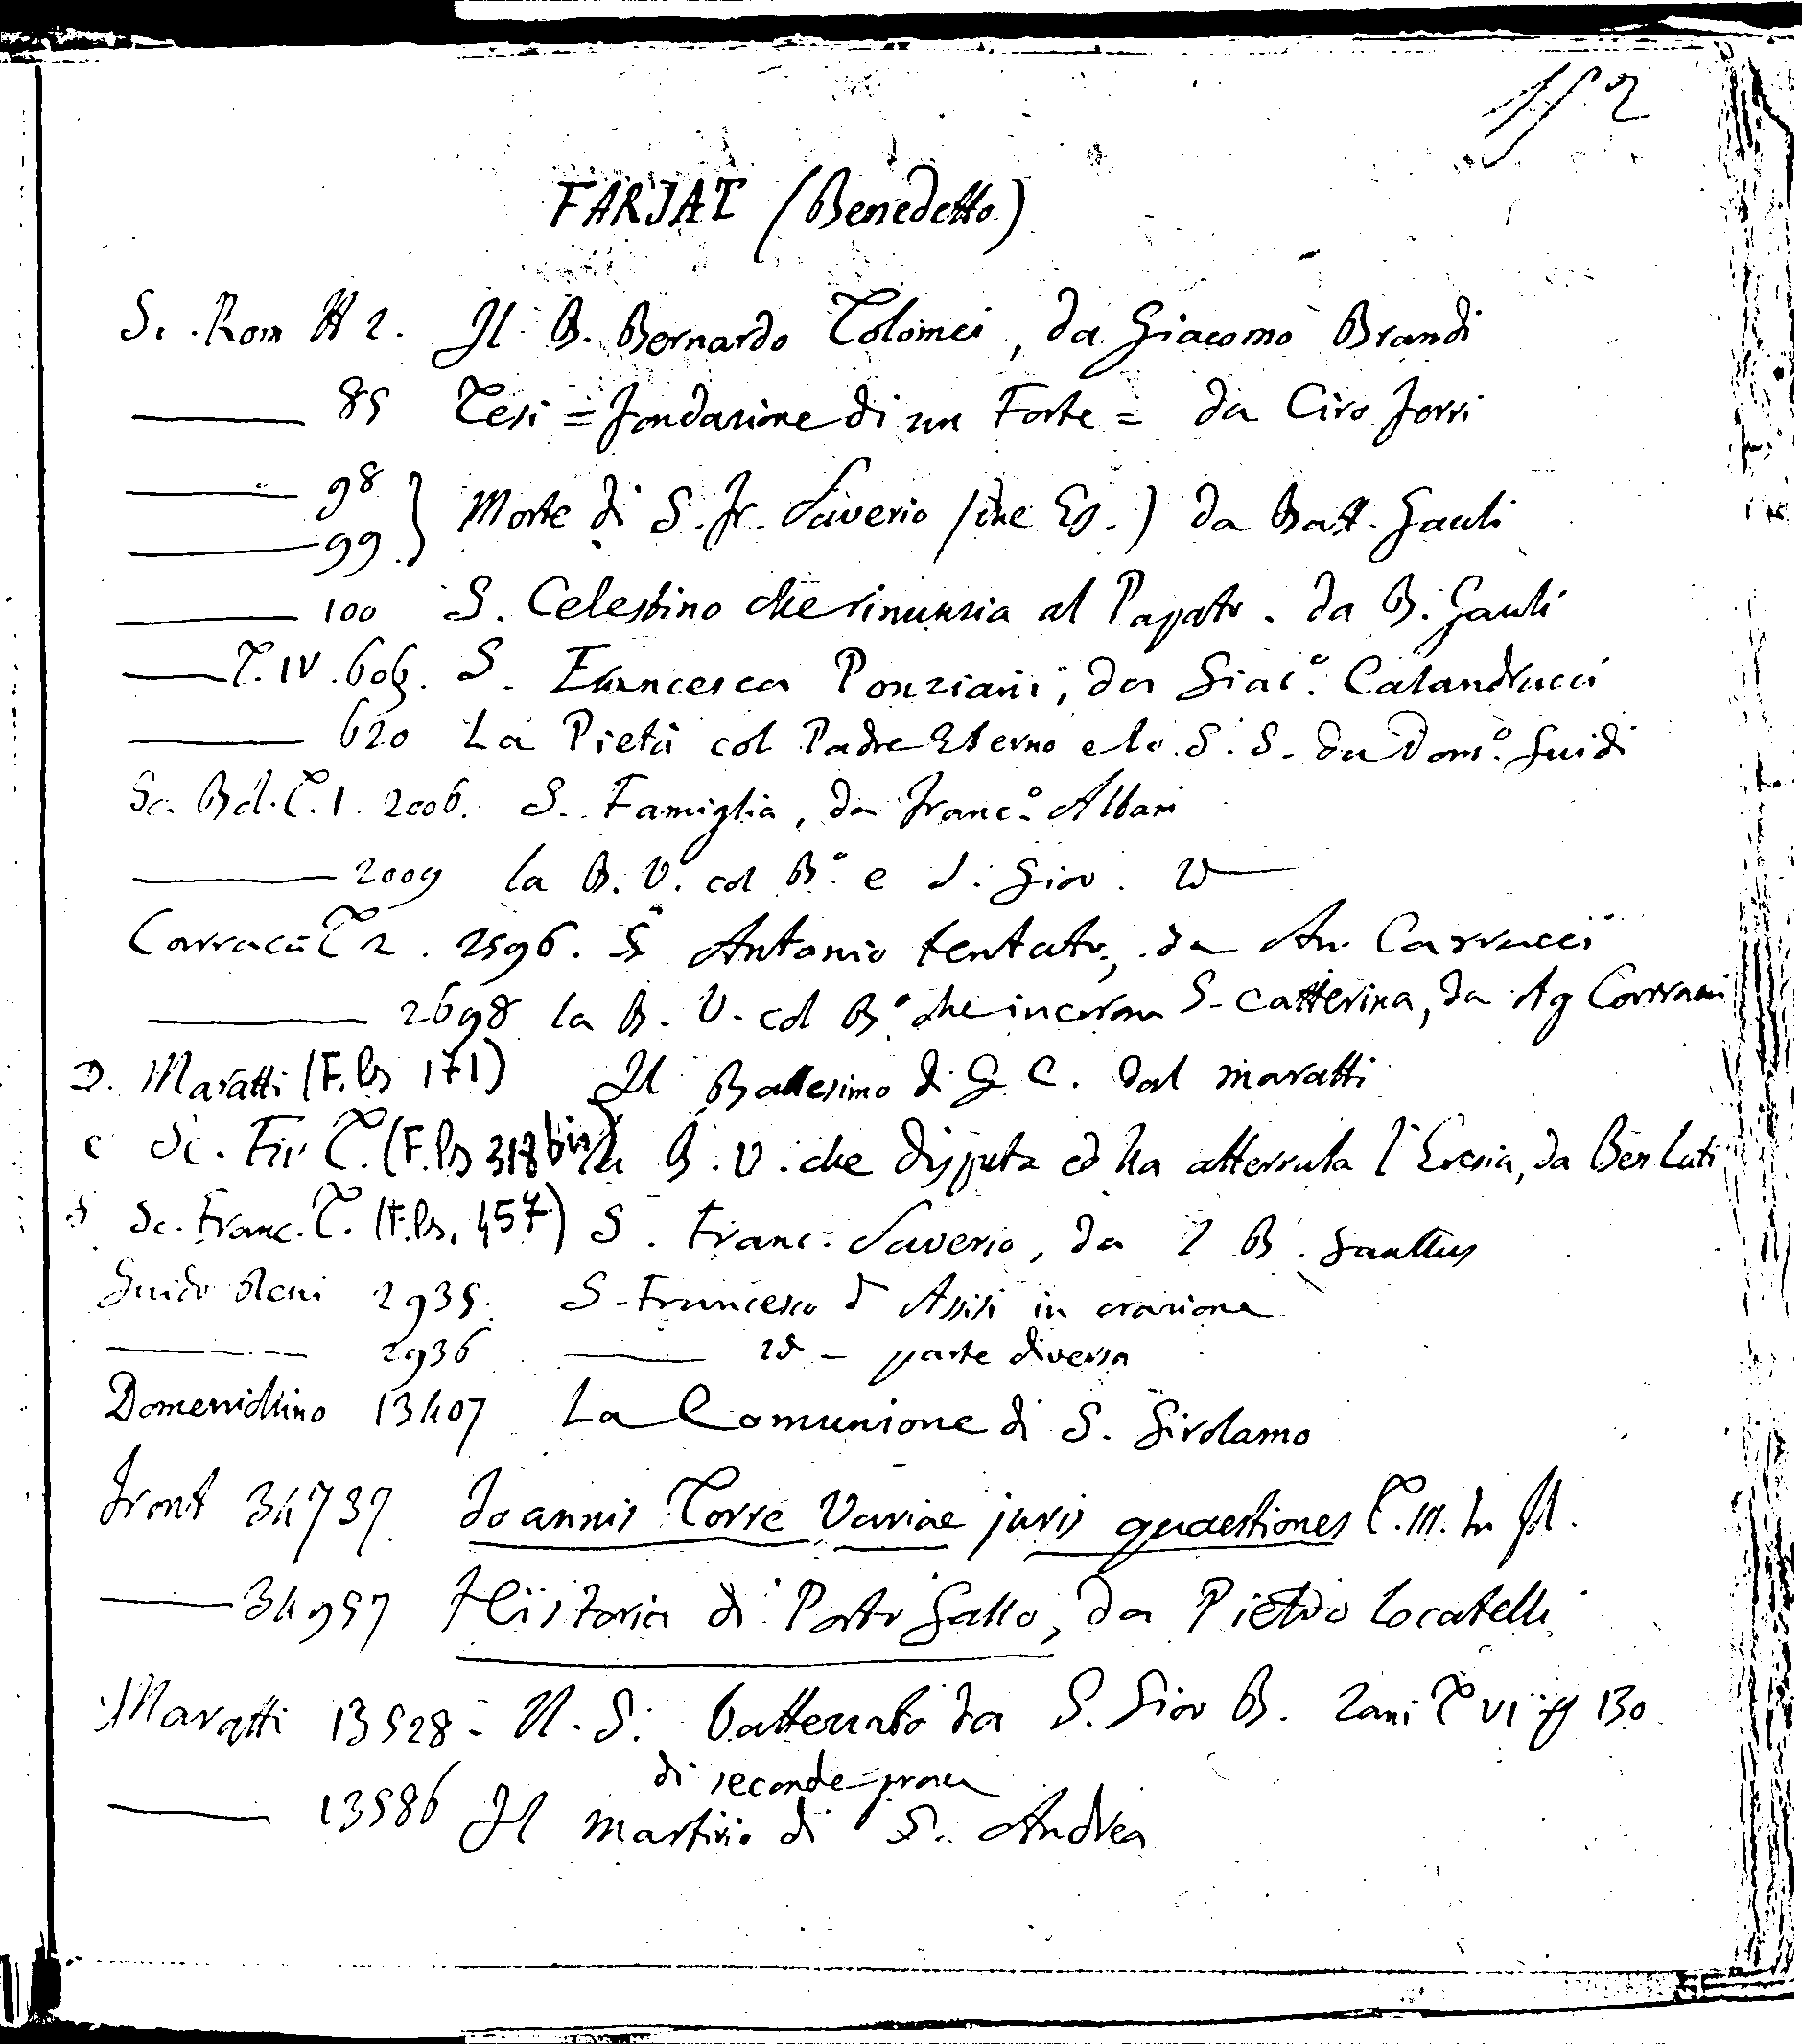 FARJAT (Benedetto)
Sc. Rom 2. Il B. Bernardo Tolomei, da Giacomo Brandi
85 Tesi = fondazione di un Forte = da Ciro Ferri
98
Morte di S. Fr. Saverio (due Es.) da Batt. Gauli
99
100 S. Celestino che rinunzia al Papato. da B. Gauli
T. IV. S. Francesca Ponziani, da Giac.º Calandrucci
620 La Pietà col Padre Eterno e lo S. S. da Dom.º Guidi
Sc. Bol. T. 1. 2006. S. Famiglia, da Franc.º Albani
2009 la B. V. col B.º e S. Giov. id
Carracci T 2. 2596. S Antonio tentato, da An. Carracci
2698 la B. V. col B.º che incorona S. Catterina, da Ag Carracci
D. Maratti (F.Ps 171) Il Battesimo di G C. dal Maratti
c Sc. Fir T. (F.Ps 318 bis) la B. V. che disputa ed ha atterrata l'Eresia, da Ben Luti
Sc. Franc. T. (F.Ps, 457) S. Franc. Saverio, da I B. Gaullus
Guido Reni 2935. S. Francesco d'Assisi in orazione
2936 id - parte diversa
Domenichino 13407 La Comunione di S. Girolamo
Front 34737. Joannis Torre Variae juris quaestiones T. III. In fol.
34957 Historia di Portogallo, da Pietro Locatelli
Maratti 13528 - N. S. battezzato da S. Giov B. Zani T VI pg 130
di seconde prova
13586 Il martirio di S. Andrea